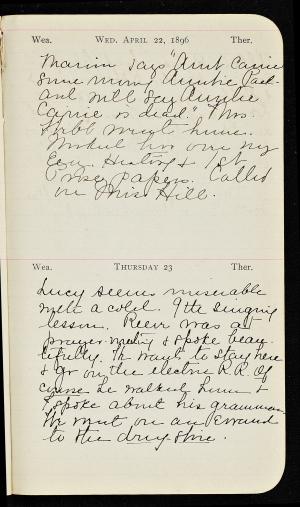 Wea. Wed. April 22, 1896 Ther.
Marion says "Aunt Carrie
some morn, Auntie
and will say Auntie
Carrie is dead." Mrs.
went home.
Worked two on my
Eng. History & 1st
papers. Called
on Miss Hill.
Wea. Thursday 23 Ther.
Lucy seems miserable
with a cold. 9th singing
lesson. was at
prayer-meeting & spoke beau-
tifully. He want to stay here
& go on the electric R.R. Of
course he walked home &
spoke about his grammar.
He went on an errand
to the drug store.